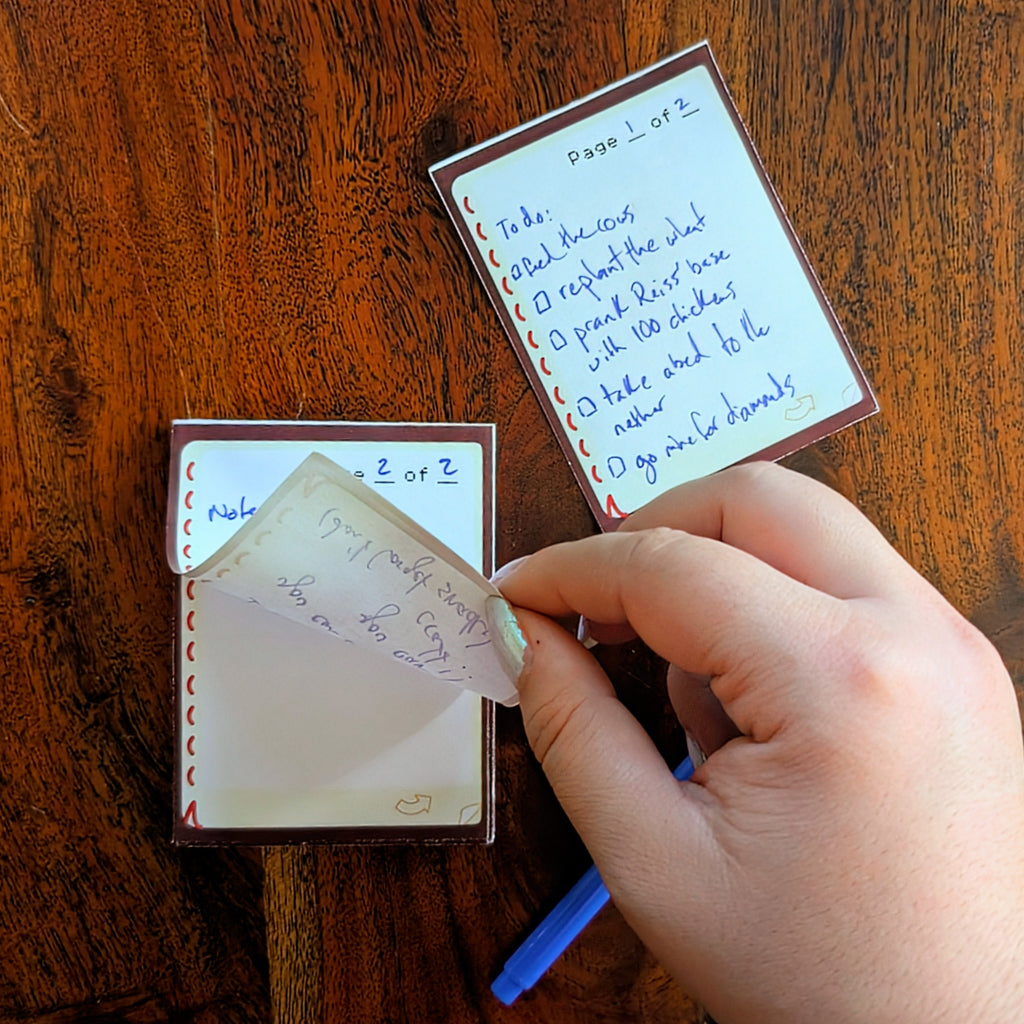 Page 1 of 2
To do:
feed the cows
replant the wheat
prank Reiss' base
with 100 chickens
take a bed to the
nether
go mine for diamonds
2 of 2
Note